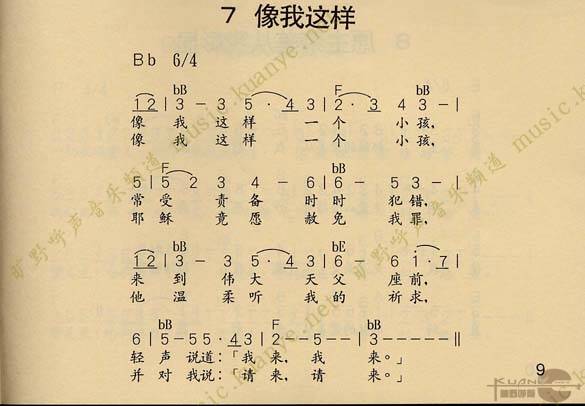 7 像我这样
Bb 6/4
bB F bB
1 2 | 3 - 3 5 · 4 3 | 2 · 3 4 3 - |
像 我 这 样 一 个 小 孩,
像 我 这 样 一 个 小 孩,
F bB
5 | 5 5 2 3 - 5 - 6 | 6 - 5 3 - |
常 受 责 备 时 时 犯 错,
耶 稣 竟 愿 赦 免 我 罪,
bB bE
1 2 | 3 - 3 5 · 4 3 | 6 - 6 1 · 7 |
来 到 伟 大 天 父 座 前,
他 温 柔 听 我 的 祈 求,
bB F bB
6 | 5 - 5 5 5 · 4 3 | 2 - - 5 - - | 3 - - - - ||
轻 声 说 道:「我 来, 我 来。」
并 对 我 说:「请 来, 请 来。」
9
旷野呼声音乐频道 music.kuanye.net